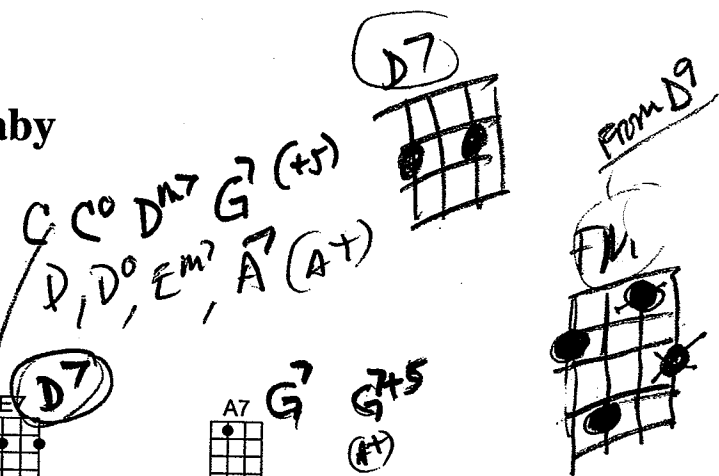 D7
From D9
aby
C C° Dm7 G7 (+5)
D, D°, Em7, A7 (A+)
Fm
D7
E7
A7
G7 G7+5
(A+)